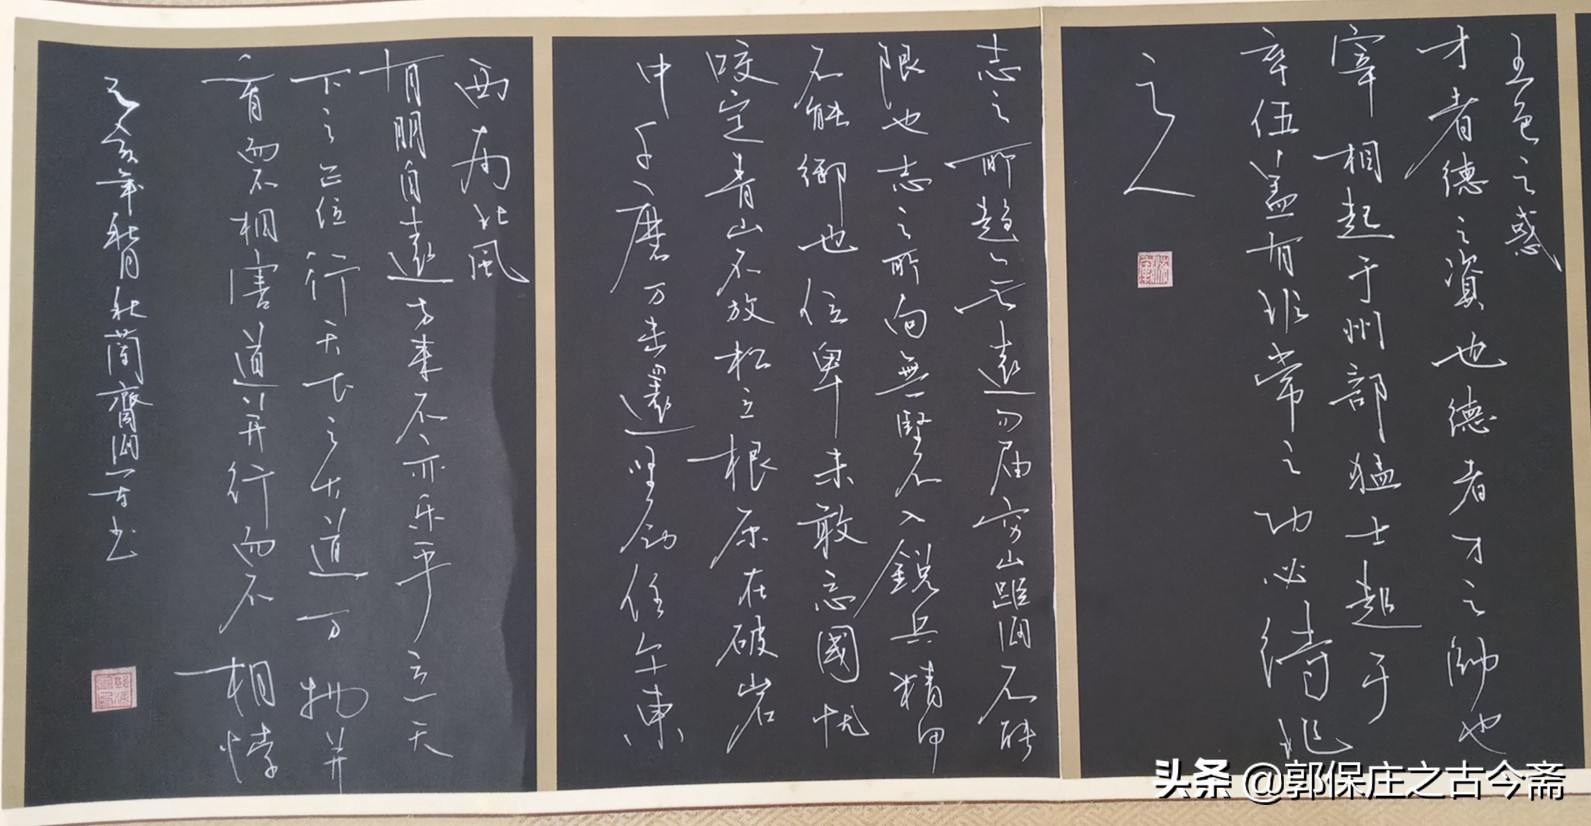 五色之惑
才者德之資也德者才之帥也
宰相起于州部猛士起于
卒伍蓋有非常之功必待非
之人
志之所趨无遠勿屆穷山距海不能
限也志之所向無堅不入銳兵精甲
不能御也位卑未敢忘國忧
咬定青山不放松立根原在破岩
中千磨万击還坚劲任尔東
西南北風
有朋自遠方来不亦乐乎立天
下之正位行天下之大道万物并
育而不相害道并行而不相悖
己亥年秋月秋蘭齋书
头条 @郭保庄之古今斋